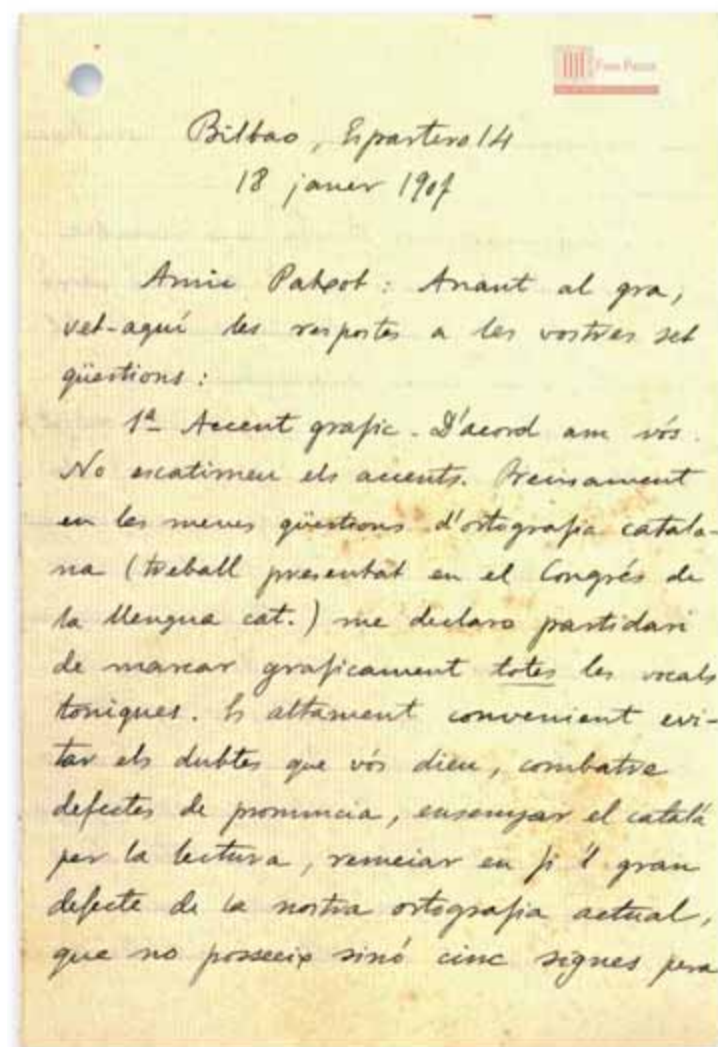 Bilbao, Espartero 14
18 janer 1907
Amic Patxot: Anant al gra,
vet-aquí les respostes a les vostres set
qüestions:
1ª Accent grafic. D'acord am vós.
No escatimeu els accents. Precisament
en les meues qüestions d'ortografia catala-
na (treball presentat en el Congrés de
la Llengua cat.) me declaro partidari
de marcar graficament totes les vocals
toniques. Es altament convenient evi-
tar els dubtes que vós dieu, combatre
defectes de pronuncia, ensenyar el català
per la lectura, remeiar en fi 'l gran
defecte de la nostra ortografia actual,
que no posseeix sinó cinc signes pera